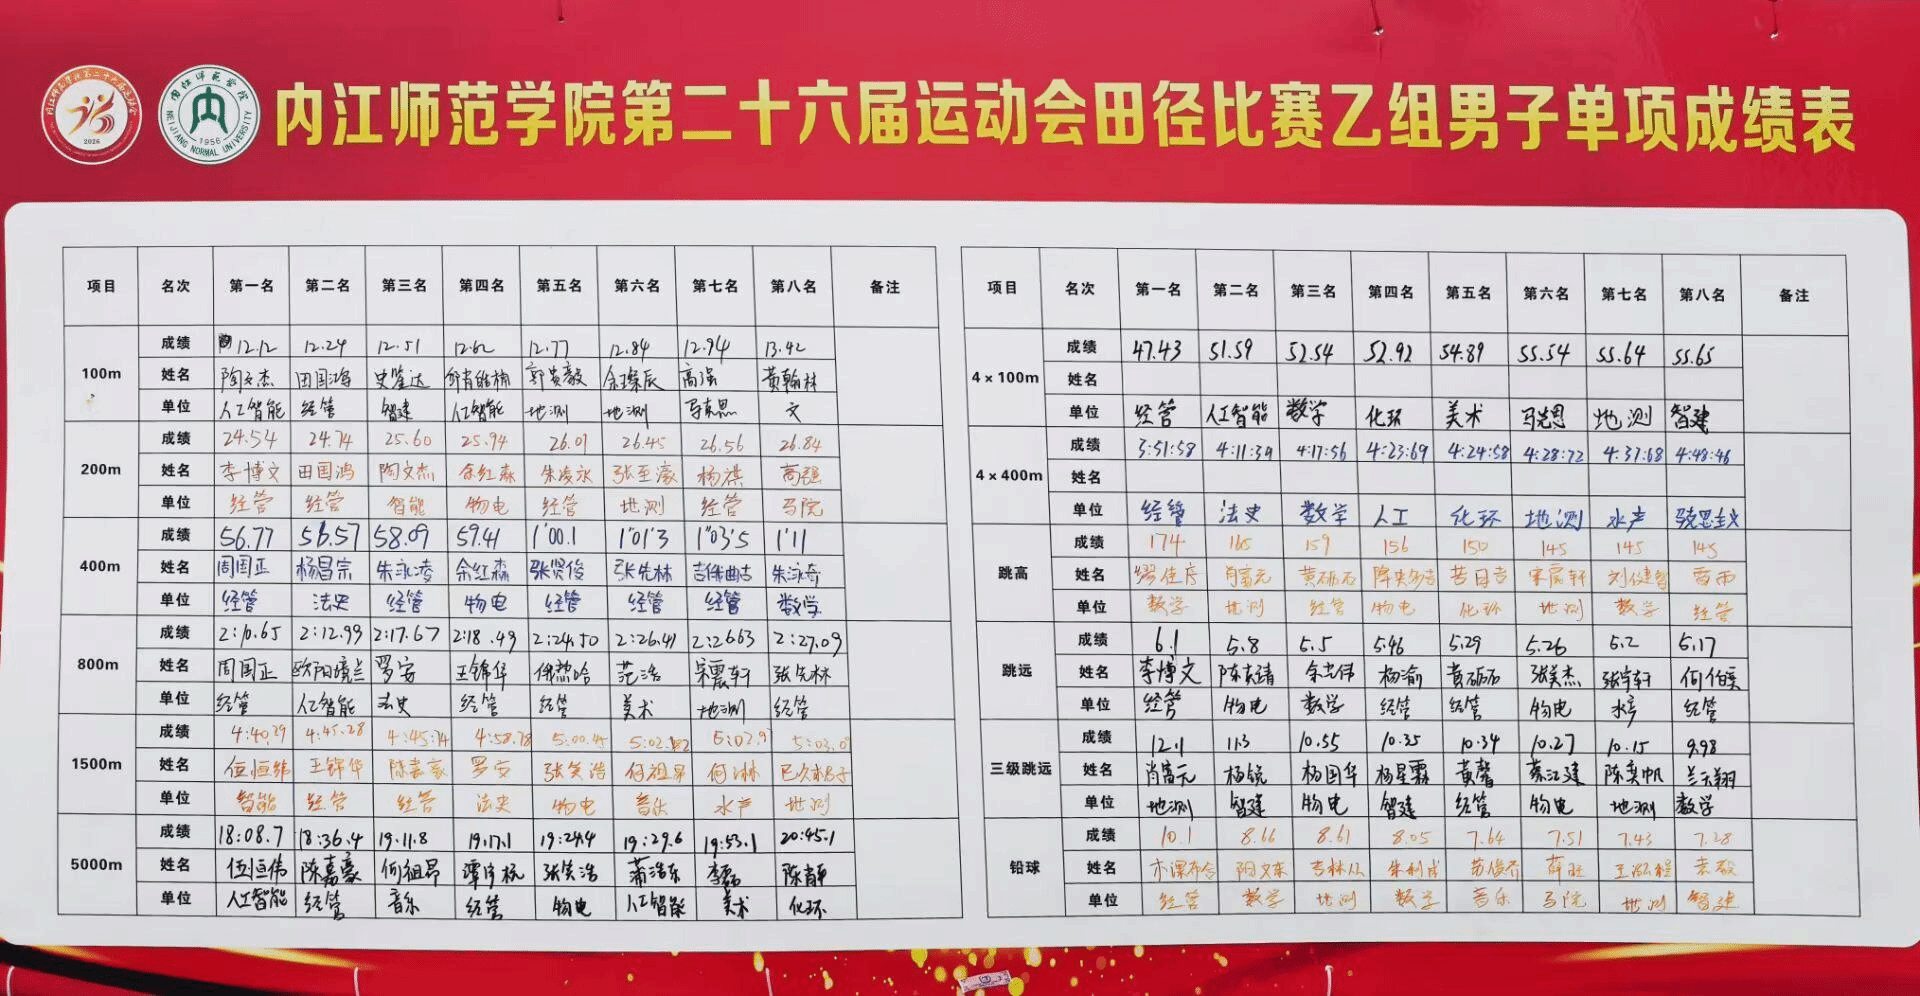 内江师范学院第二十六届运动会田径比赛乙组男子单项成绩表
内江师范学院
NEIJIANG NORMAL UNIVERSITY
1956
2026
项目 名次 第一名 第二名 第三名 第四名 第五名 第六名 第七名 第八名 备注
100m
成绩 12.12 12.24 12.51 12.62 12.77 12.84 12.94 13.42
姓名 陶文杰 田国鸿 郭贵毅 高强 黄翰林
单位 人工智能 经管 智建 人工智能 地测 地测 马克思 文
200m
成绩 24.54 24.74 25.60 25.94 26.01 26.45 26.56 26.84
姓名 李博文 田国鸿 陶文杰 余红森 朱凌永 张至濠 杨祺 高强
单位 经管 经管 智能 物电 经管 地测 经管 马院
400m
成绩 56.77 56.57 58.09 59.41 1'00.1 1'01'3 1"03'5 1'11
姓名 周国正 杨昌宗 朱泳凌 余红森 张贤俊 张先林 朱泳奇
单位 经管 法史 经管 物电 经管 经管 经管 数学
800m
成绩 2:10.65 2:12.99 2:17.67 2:18.49 2:24.50 2:26.41 2:2663 2:27.09
姓名 周国正 罗安 王锦华 范浩 宋震轩 张先林
单位 经管 人工智能 法史 经管 经管 美术 地测 经管
1500m
成绩 4:40.29 4:45.28 4:45.74 4:58.78 5:00.45 5:02.82 5:02.9 5:03.0
姓名 伍恒纬 王锦华 陈嘉豪 罗安 张笑浩 何祖昂 何淋
单位 智能 经管 经管 法史 物电 音乐 水产 地测
5000m
成绩 18:08.7 18:36.4 19:11.8 19:17.1 19:24.4 19:29.6 19:53.1 20:45.1
姓名 伍恒伟 陈嘉豪 何祖昂 张笑浩 蒲浩东 李磊 陈静
单位 人工智能 经管 音乐 经管 物电 人工智能 美术 化环
项目 名次 第一名 第二名 第三名 第四名 第五名 第六名 第七名 第八名 备注
4×100m
成绩 47.43 51.59 52.54 52.92 54.89 55.54 55.64 55.65
姓名
单位 经管 人工智能 数学 化环 美术 马克思 地测 智建
4×400m
成绩 3:51:58 4:11:39 4:17:56 4:23:69 4:24:58 4:28:72 4:37:68 4:48:46
姓名
单位 经管 法史 数学 人工 化环 地测 水产 马克思主义
跳高
成绩 174 165 159 156 150 145 145 145
姓名 缪佳序 肖富元 黄砺石 宋震轩 刘健智 雷雨
单位 数学 地测 经管 物电 化环 地测 数学 经管
跳远
成绩 6.1 5.8 5.5 5.46 5.29 5.26 5.2 5.17
姓名 李博文 杨渝 黄砺石 张美杰 张宇轩
单位 经管 物电 数学 经管 经管 物电 水产 经管
三级跳远
成绩 12.1 11.3 10.55 10.35 10.34 10.27 10.15 9.98
姓名 肖富元 杨锐 杨国华 杨星霖 黄馨 蔡江建 陈奕帆 兰天翔
单位 地测 智建 物电 智建 经管 物电 地测 数学
铅球
成绩 10.1 8.66 8.61 8.05 7.64 7.51 7.43 7.28
姓名 阳文东 朱利成 苏俊乔 薛旺 王泓程 袁毅
单位 经管 数学 地测 数学 音乐 马院 地测 智建